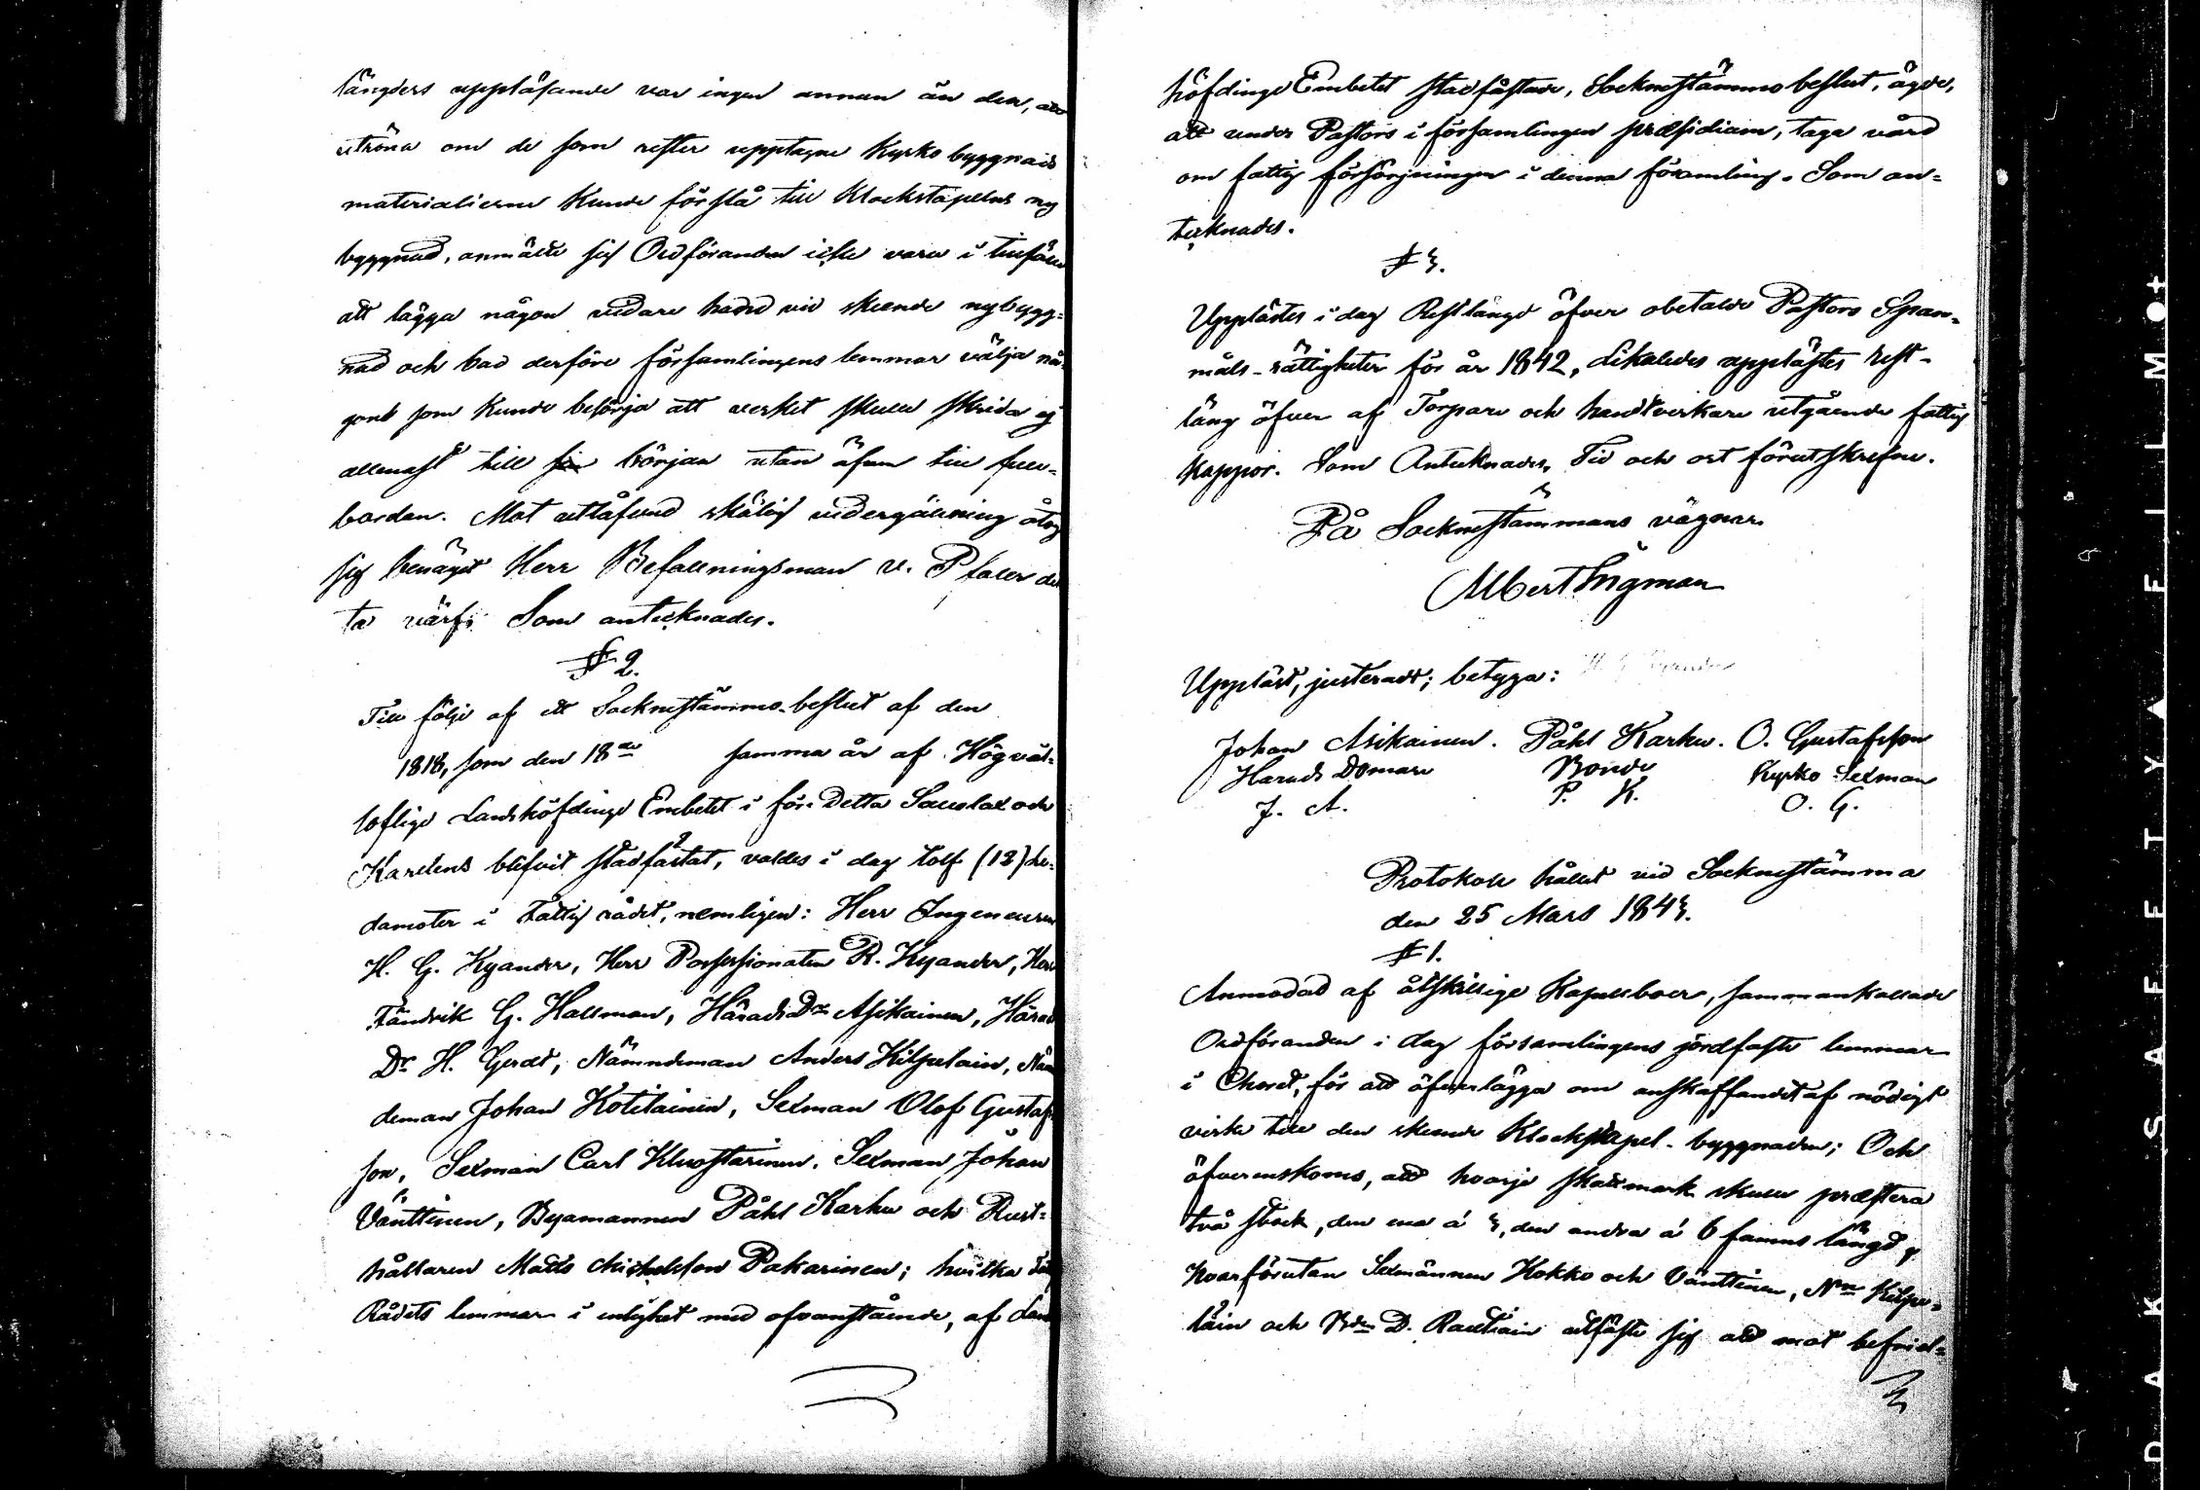 längders uppläsande var ingen annan än den, att
utröna om de som rester upptagne Kyrko byggnads
materialierne Kunde förslå till Klockstapelns ny
byggnad, anmälte sig Ordföranden icke vara i tillfälle
att lägga någon vidare hand vid skeende nybygg=
nad och bad derföre församlingens lemmar välja nå-
gon som Kunde besörja att verket skulle skrida ej
allenast till sin början utan äfven till full-
bordan. Mot utlåfvad skälig vidergällning åtog
sig benäget Herr Befallningsman v. Pfaler det
ta värf. Som antecknades.
§ 2.
Till följe af ett Sockenstämmo-beslut af den
1818, som den 18de samma år af Högväl-
loflige Landshöfdinge Embetet i för Detta Savolax och
Karelens blifvit stadfästat, valdes i dag tolf (12) le-
damoter i Fattig rådet, nemligen: Herr Ingeneuren
H. G. Kyander, Herr Possessionaten R. Kyander, Herr
Fändrik G. Hallman, Härads Dn Asikainen, Härads
Dn H. Gerdt, Nämndeman Anders Kilpelain, Näm
deman Johan Kotilainen, Sexman Olof Gustaf
son, Sexman Carl Kluostarinen, Sexman Johan
Vänttinen, Byamannen Påhl Karhu och Rust=
hållaren Matts Michelsson Pakarinen; hvilka
Rådets lemmar i enlighet med ofvanstående, af Lands
höfdinge Embetet stadfästade, Sockenstämmo beslut, ägde,
att under Pastors i församlingen præsidium, taga vård
om fattig försörjningen i denna församling. Som an=
tecknades.
§ 3.
Upplästes i dag Restlängd öfver obetalde Pastors Span-
måls-rättigheter för år 1842, Likaledes upplästes rest-
läng öfver af Torpare och handtverkare utgående fattig
Kappor. Som Antecknades, Tid och ort förutskrefne.
På Sockenstämmans vägnar
Albert Ingman
Uppläst, justeradt; betyga:
Johan Asikainen. Påhl Karhu. O. Gustafsson
Härads Domare Bonde Kyrko Sexman
J. A. P. K. O. G.
Protokoll hållet vid Sockenstämma
den 25 Mars 1843.
§ 1.
Anmodad af åtskillige Kapellboer, sammankallade
Ordföranden i dag församlingens jordfaste lemmar
i Choret, för att öfverlägga om anskaffandet af nödigt
virke till den skeende Klockstapel-byggnaden; Och
öfverenskoms, att hvarje skattmark skulle præstera
två stock, den ena á 3, den andra á 6 famns längd,
hvarförutan Sexmännen Kokko och Vänttinen, Nn Kilpe=
läin och Bdn D. Rautiain utfäste sig att mot befriel=